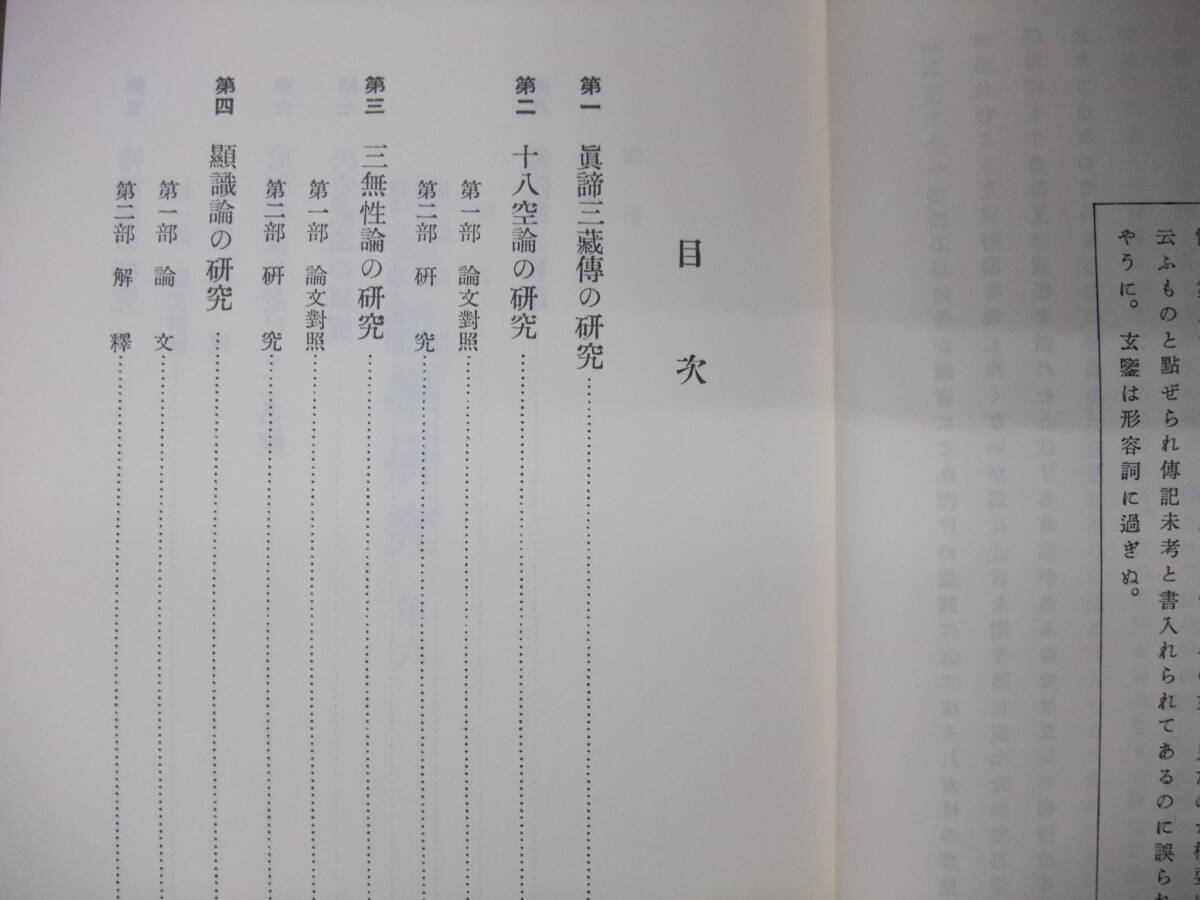 云ふものと點ぜられ傳記未考と書入れられてあるのに誤られ
やうに。玄鑒は形容詞に過ぎぬ。
目次
第一 眞諦三藏傳の研究
第二 十八空論の研究
第一部 論文對照
第二部 研究
第三 三無性論の研究
第一部 論文對照
第二部 研究
第四 顯識論の研究
第一部 論文
第二部 解釋